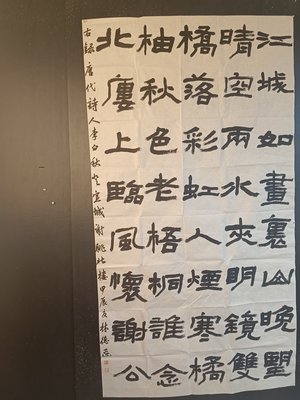 江城如畫裏山晚望
晴空兩水夾明鏡雙
橋落彩虹人煙寒橘
柚秋色老梧桐誰念
北樓上臨風懷謝公
右錄唐代詩人李白秋登宣城謝朓北樓甲辰夏林